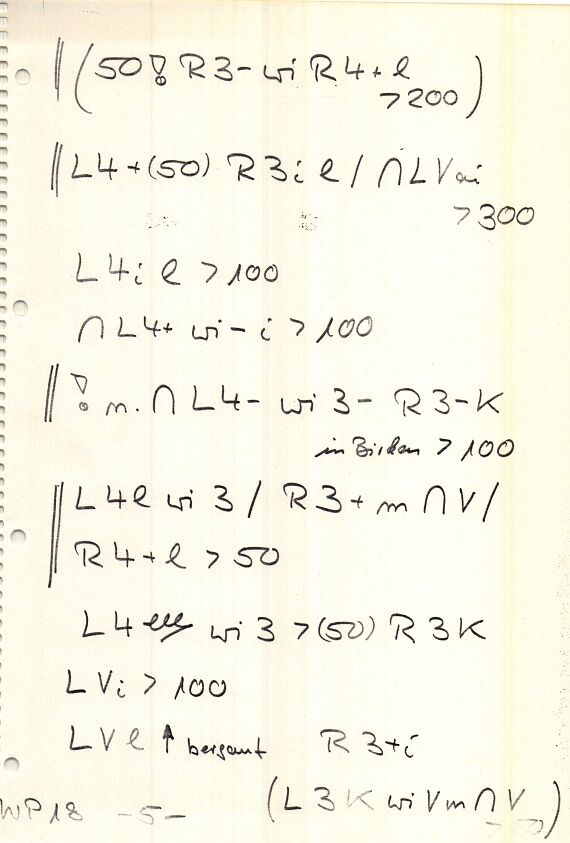 (50! R3- wi R4+ l
>200)
L4+(50) R3i l / ∩LVai
>300
L4i l >100
∩L4+ wi- i >100
! m. ∩ L4- wi 3- R3-K
in Birken >100
L4l wi 3 / R3+ m ∩V /
R4+l >50
L4 wi 3 >(50) R3K
LVi >100
LVl ↑ bergauf R3+i
(L3K wi Vm∩V
>50)
WP18 -5-